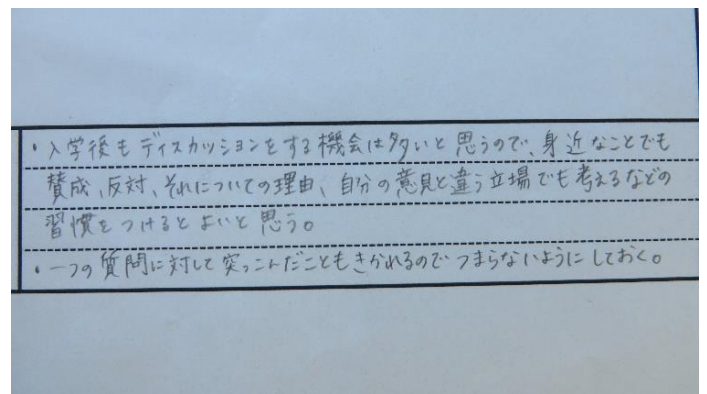 ・入学後もディスカッションをする機会は多いと思うので、身近なことでも
賛成、反対、それについての理由、自分の意見と違う立場でも考えるなどの
習慣をつけるとよいと思う。
・一つの質問に対して突っこんだこともきかれるのでつまらないようにしておく。